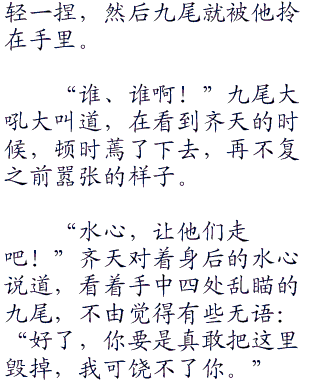 轻一捏，然后九尾就被他拎
在手里。
“谁、谁啊！”九尾大
吼大叫道，在看到齐天的时
候，顿时蔫了下去，再不复
之前嚣张的样子。
“水心，让他们走
吧！”齐天对着身后的水心
说道，看着手中四处乱瞄的
九尾，不由觉得有些无语：
“好了，你要是真敢把这里
毁掉，我可饶不了你。”